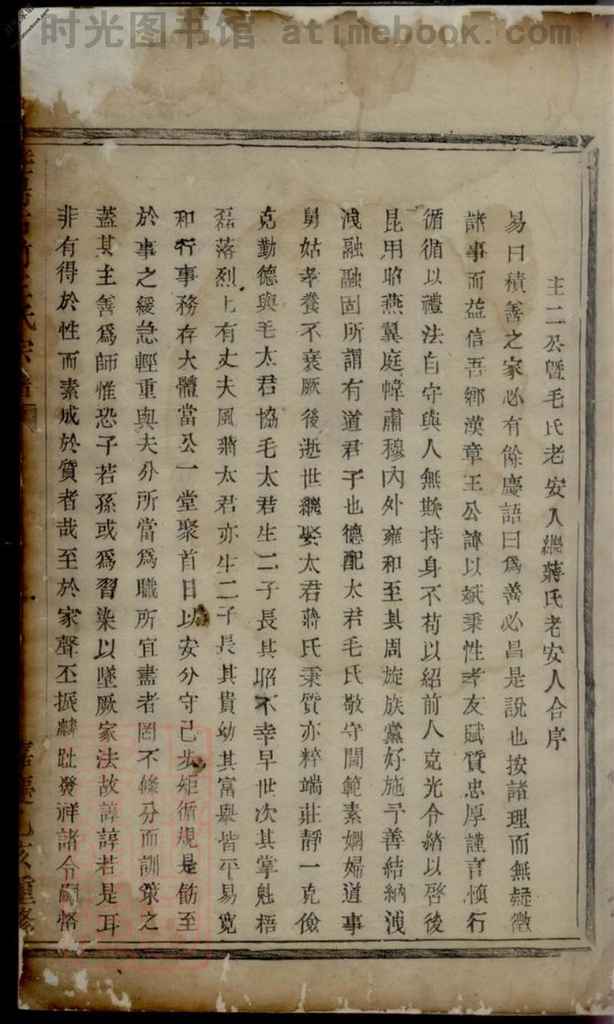 时光图书馆 atimebook.com
主二公暨毛氏老安人繼蔣氏老安人合序
易曰積善之家必有餘慶語曰為善必昌是說也按諸理而無疑徵
諸事而益信吾鄉漢章王公諱以斌秉性孝友賦質忠厚謹言慎行
循循以禮法自守與人無欺持身不苟以紹前人克光令緒以啓後
昆用昭燕翼庭幃肅穆內外雍和至其周旋族黨好施予善結納洩
洩融融固所謂有道君子也德配太君毛氏敬守閫範素嫻婦道事
舅姑孝養不衰厥後逝世繼娶太君蔣氏秉質亦粹端莊靜一克儉
克勤德與毛太君協毛太君生二子長其昭不幸早世次其掌魁梧
磊落烈上有丈夫風蔣太君亦生二子長其貴幼其富舉皆平易寬
和行事務存大體當公一堂聚首日以安分守己步矩循規是飭至
於事之緩急輕重與夫分所當為職所宜盡者罔不條分而訓策之
蓋其主善為師惟恐子若孫或為習染以墜厥家法故諄諄若是耳
非有得於性而素成於質者哉至於家聲丕振麟趾發祥諸令嗣恪
氏宗譜
亥重修